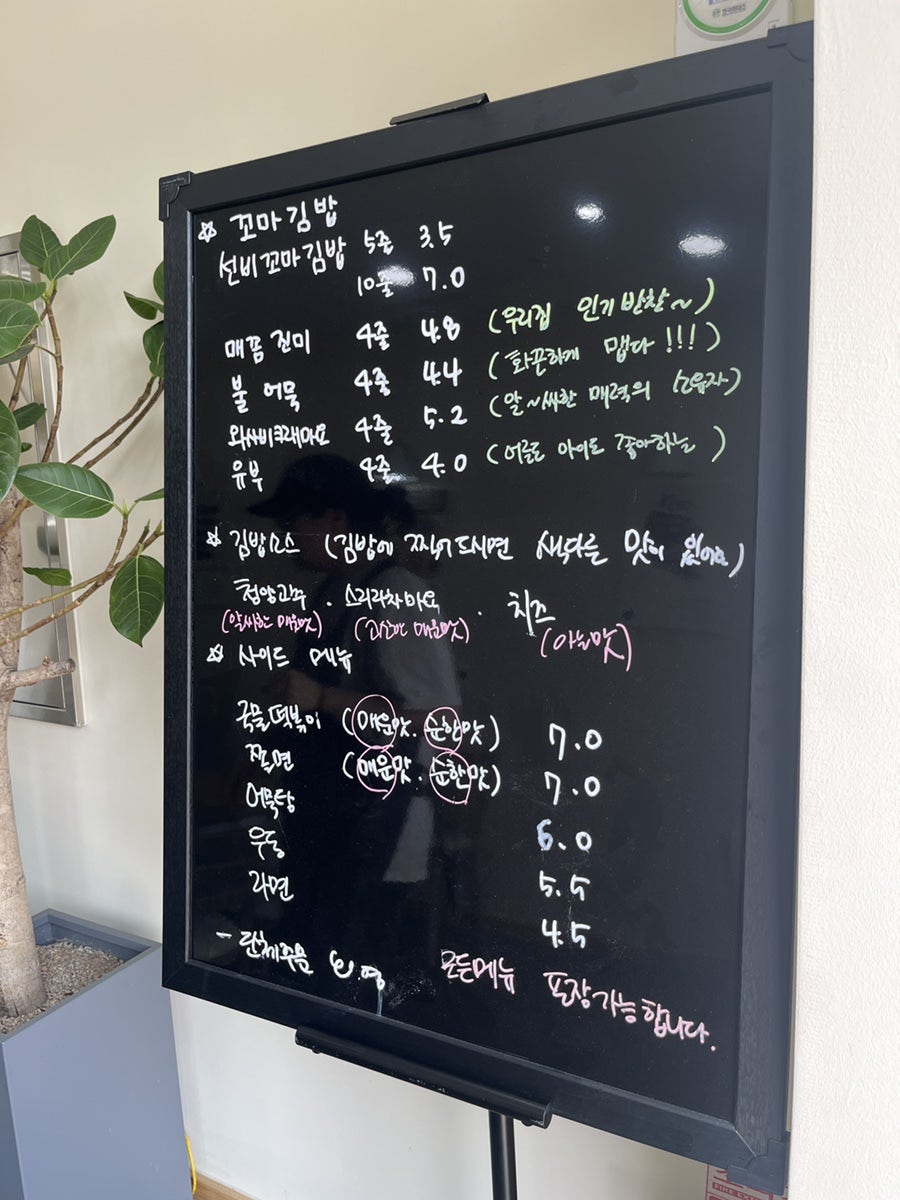 ☆ 꼬마김밥
선비꼬마김밥 5줄 3.5
10줄 7.0
매콤진미 4줄 4.8 (우리집 인기반찬~)
불어묵 4줄 4.4 (화끈하게 맵다!!!)
와싸비크래마요 4줄 5.2 (알~싸한 매력의 소유자)
유부 4줄 4.0 (어른도 아이도 좋아하는)
☆ 김밥소스 (김밥에 찍어드시면 색다른 맛이 있어요)
청양고추 . 스리라차마요 . 치즈
(알싸한 매운맛) (매운맛) (아는맛)
☆ 사이드 메뉴
국물떡볶이 (매운맛. 순한맛) 7.0
쫄면 (매운맛. 순한맛) 7.0
어묵탕 6.0
우동 5.5
라면 4.5
- 단체주문 환.영 모든메뉴 포장가능합니다.